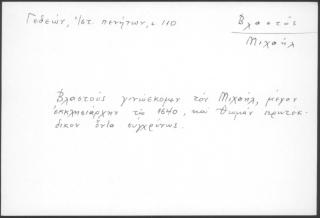 Γεδεών, Πατ. πενήτων, σ. 110
Βλαστός
Μιχαήλ
Βλαστοὺς γινώσκομεν τὸν Μιχαήλ, μέγαν
ἐκκλησιάρχην τῷ 1640, καὶ Θωμᾶν πρωτεκ-
δικον ὄντα συγχρόνως.